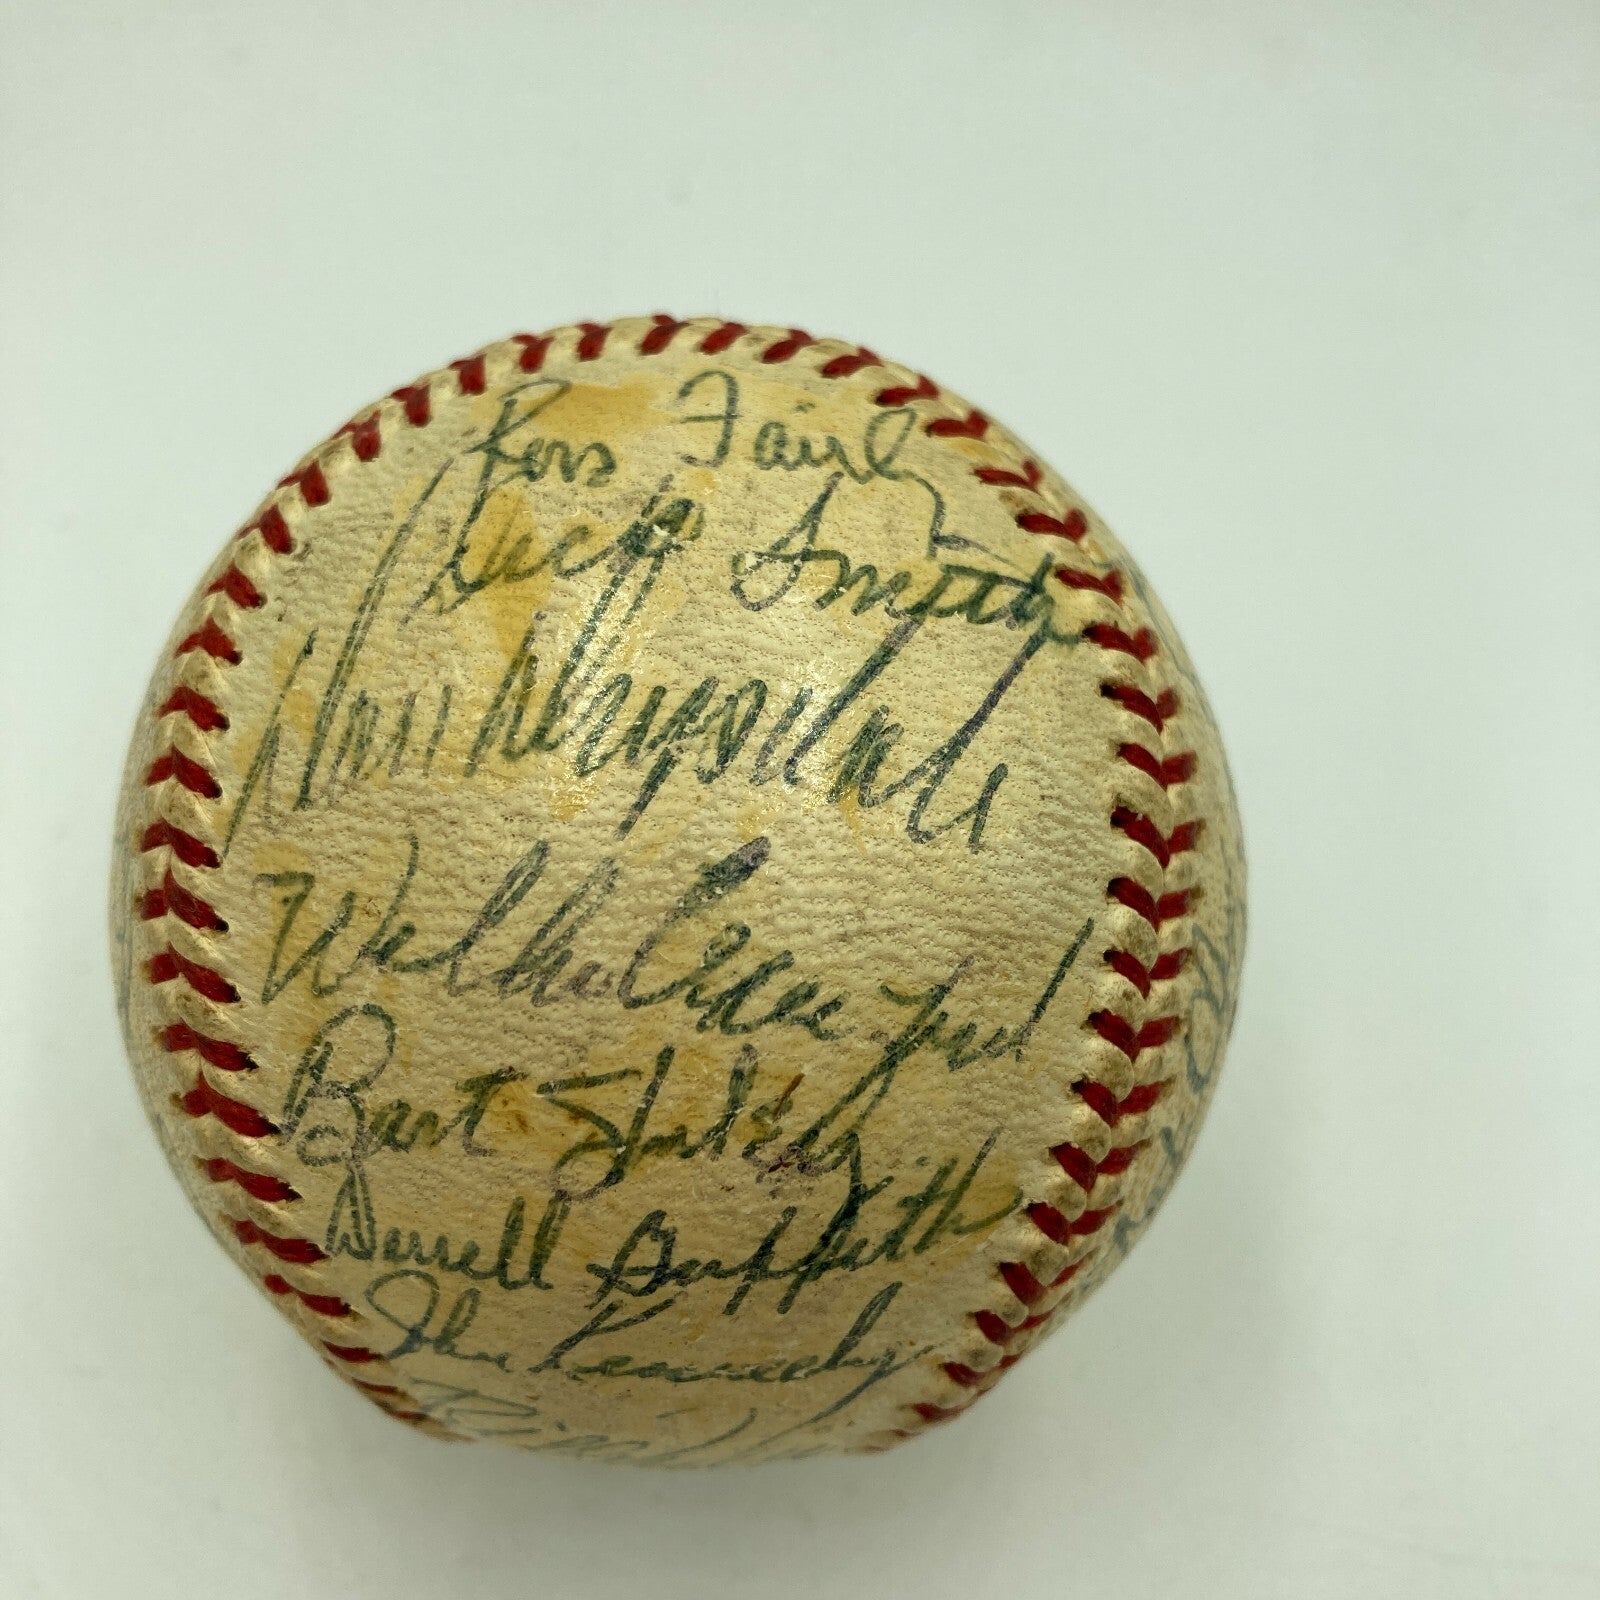 Ron Fairly
Dick Smith
Don Drysdale
Willie Crawford
Bart Shirley
Derrell Griffith
John Kennedy